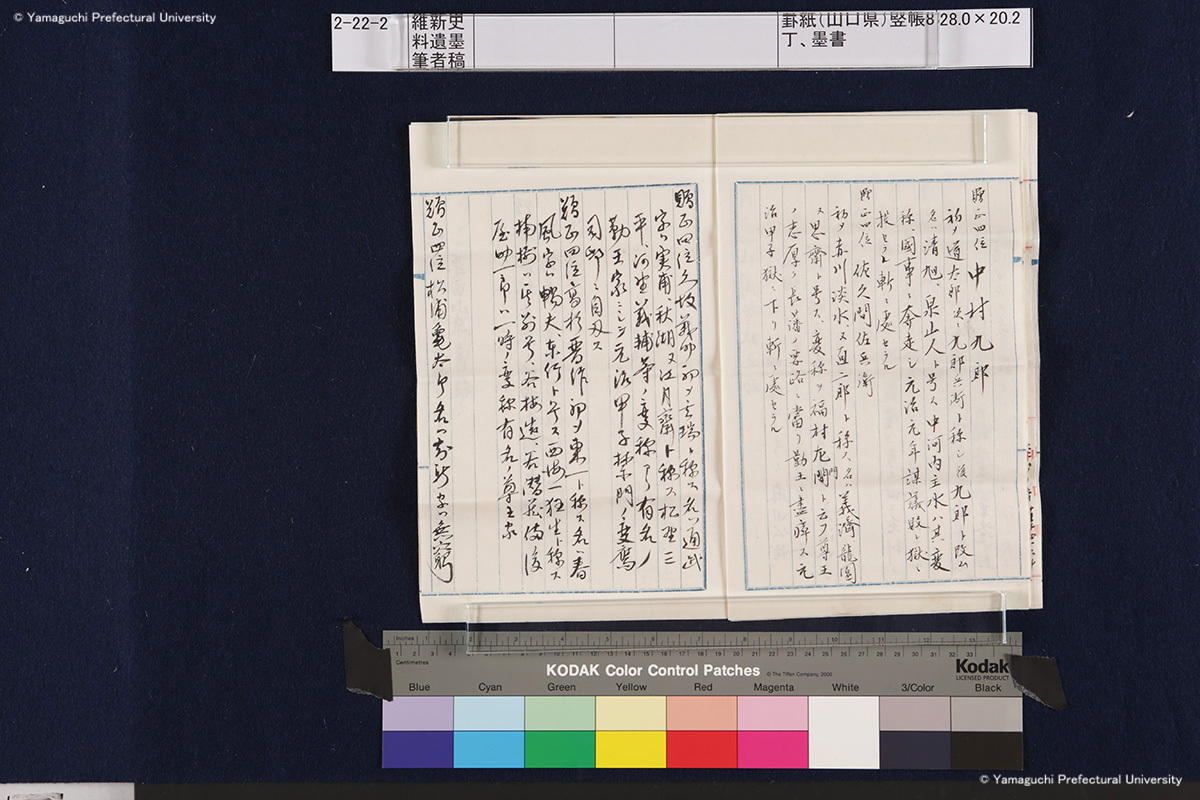 © Yamaguchi Prefectural University
2-22-2
維新史
料遺墨
筆者稿
罫紙(山口県)竪帳8
丁、墨書
28.0×20.2
贈正四位 中村九郎
初メ道太郎次ニ九郎兵衛ト称シ後九郎ト改ム
名ハ清旭、泉山人ト号ス中河内主水ハ其変
称、國事ニ奔走シ元治元年謀議敗レ獄ニ
投セラレ斬ニ處セラル
贈正四位 佐久間佐兵衛
初メ赤川淡水、又直二郎ト称ス名ハ義濟龍圀
又思齋ト号ス、変称ヲ福村左門ト云フ尊王
ノ志厚ク長藩ノ要路ニ當リ勤王ニ盡瘁ス元
治甲子獄ニ下リ斬ニ處セラル
贈正四位久坂義助初メ玄瑞ト称ス名ハ通武
字ハ実甫、秋湖又江月齋ト称ス松野三
平、河野義輔等ノ変称アリ有名ノ
勤王家ニシテ元治甲子禁門ノ変鷹
司邸ニ自刃ス
贈正四位高杉晋作初メ東一ト称ス名ハ春
風字ハ暢夫、東行ト号ス西海一狂生ト称ス
楠樹ハ其前号谷梅造、谷潜蔵備後
屋助一郎ハ一時ノ変称有名ノ尊王家
贈正四位 松浦亀太郎名ハ知新字ハ無窮
Inches
Centimetres
KODAK Color Control Patches
© The Tiffen Company, 2000
Kodak
LICENSED PRODUCT
Blue
Cyan
Green
Yellow
Red
Magenta
White
3/Color
Black
© Yamaguchi Prefectural University